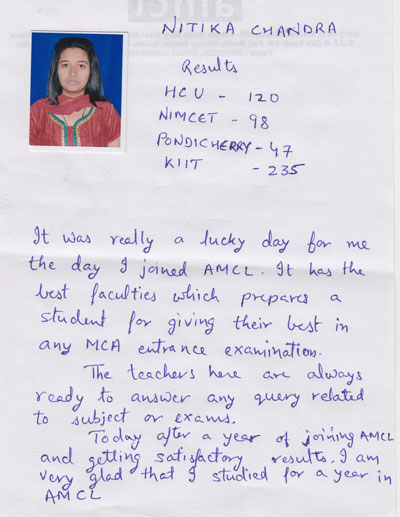 NITIKA CHANDRA
Results
HCU - 120
NIMCET - 98
PONDICHERRY - 47
KIIT - 235
It was really a lucky day for me
the day I joined AMCL. It has the
best faculties which prepares a
student for giving their best in
any MCA entrance examination.
The teachers here are always
ready to answer any query related
to subject or exams.
Today after a year of joining AMCL
and getting satisfactory results. I am
very glad that I studied for a year in
AMCL